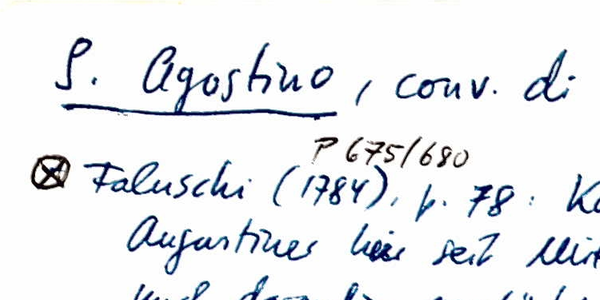 S. Agostino, conv. di
P 675/680
Faluschi (1784), p. 78: K
Augustiner hier seit Mit
und